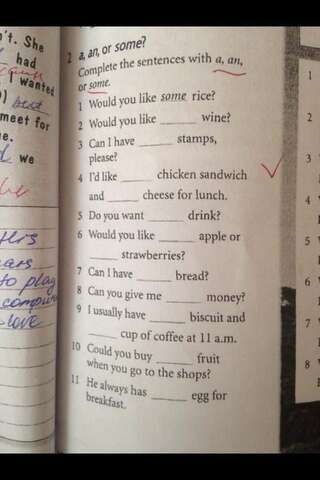 't. She
had
I wanted
meet for
e.
we
to play
love
2 a, an, or some?
Complete the sentences with a, an,
or some.
1 Would you like some rice?
2 Would you like ______ wine?
3 Can I have ______ stamps,
please?
4 I'd like ______ chicken sandwich
and ______ cheese for lunch.
5 Do you want ______ drink?
6 Would you like ______ apple or
______ strawberries?
7 Can I have ______ bread?
8 Can you give me ______ money?
9 I usually have ______ biscuit and
______ cup of coffee at 11 a.m.
10 Could you buy ______ fruit
when you go to the shops?
11 He always has ______ egg for
breakfast.
1
2
3
4
5
6
7
8